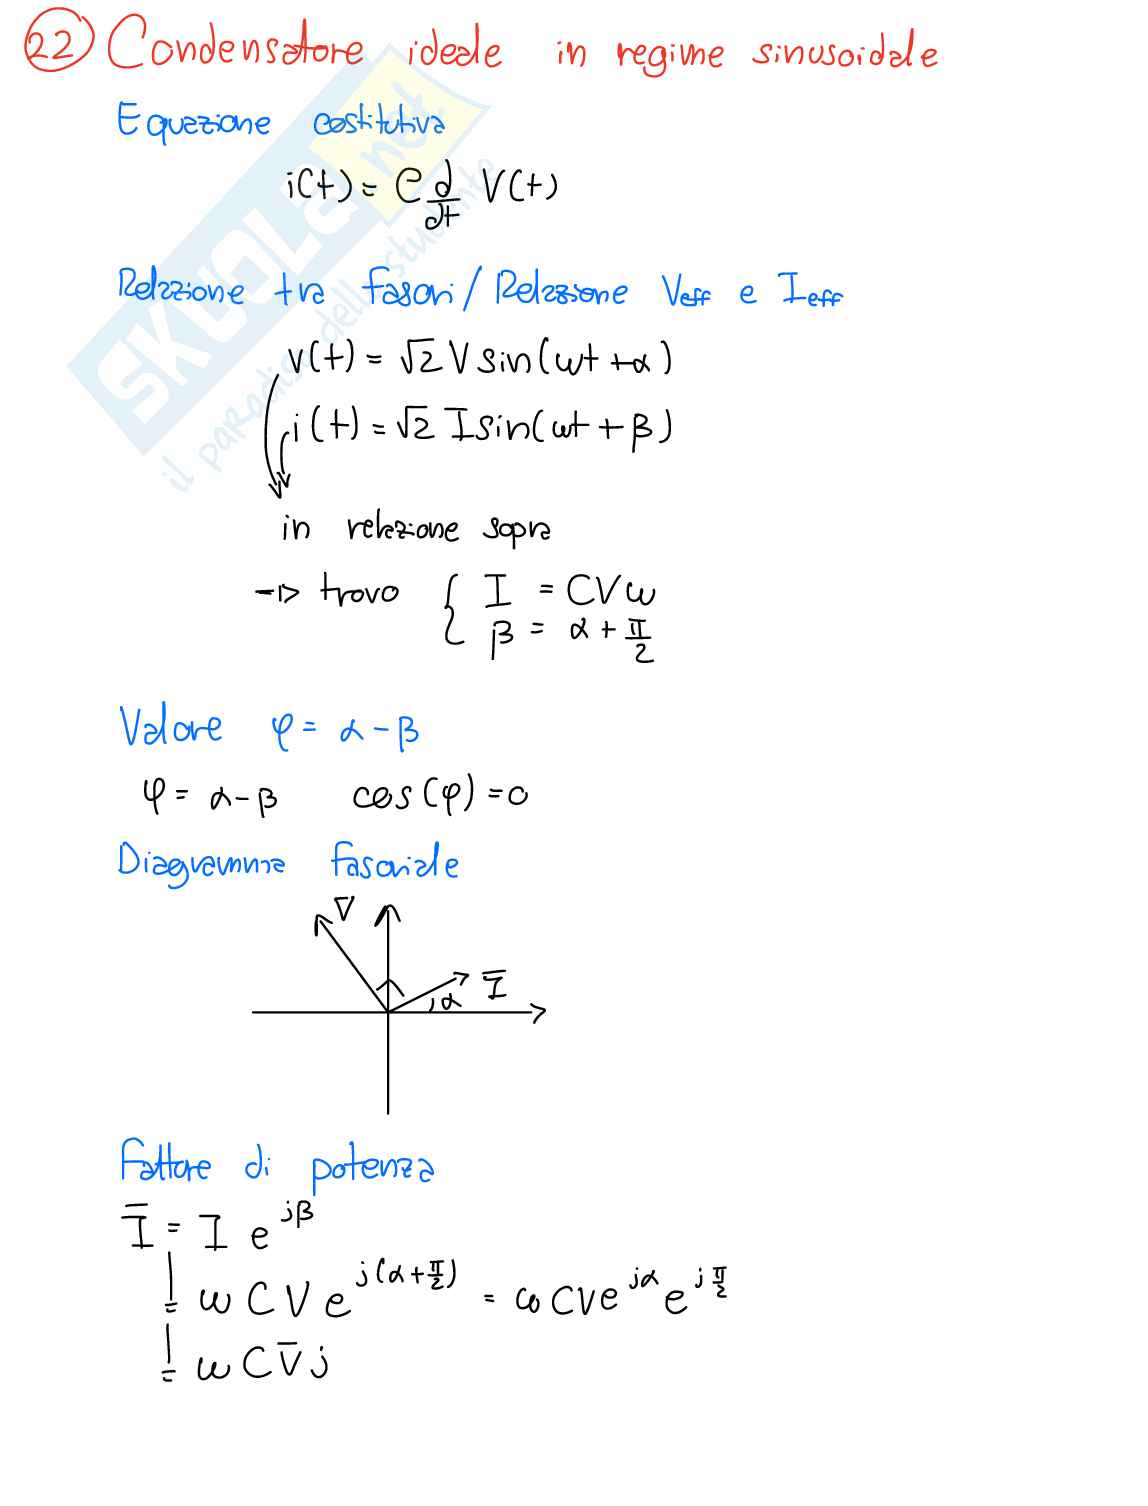 22 Condensatore ideale in regime sinusoidale
Equazione costitutiva
i(t) = C d/dt V(t)
Relazione tra fasori / Relazione Veff e Ieff
v(t) = √2 V sin(ωt + α)
i(t) = √2 I sin(ωt + β)
in relazione sopra
-> trovo { I = CVω
β = α + π/2
Valore φ = α - β
φ = α - β cos(φ) = 0
Diagramma fasoriale
V̅
I̅
α
Fattore di potenza
I̅ = I e^{jβ}
= ω C V e^{j(α + π/2)} = ω C V e^{jα} e^{j π/2}
= ω C V̅ j
SKUOLA.net
il paradiso dello studente